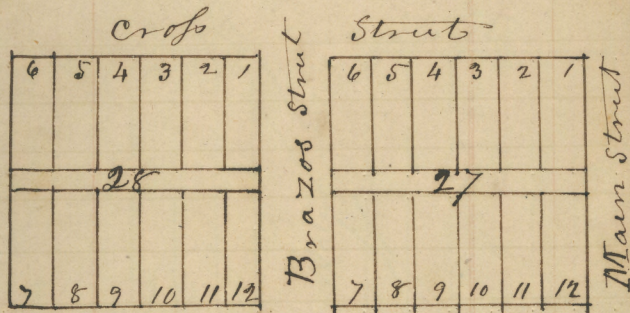 Cross Street
6 5 4 3 2 1
28
7 8 9 10 11 12
Brazos Street
6 5 4 3 2 1
27
7 8 9 10 11 12
Main Street